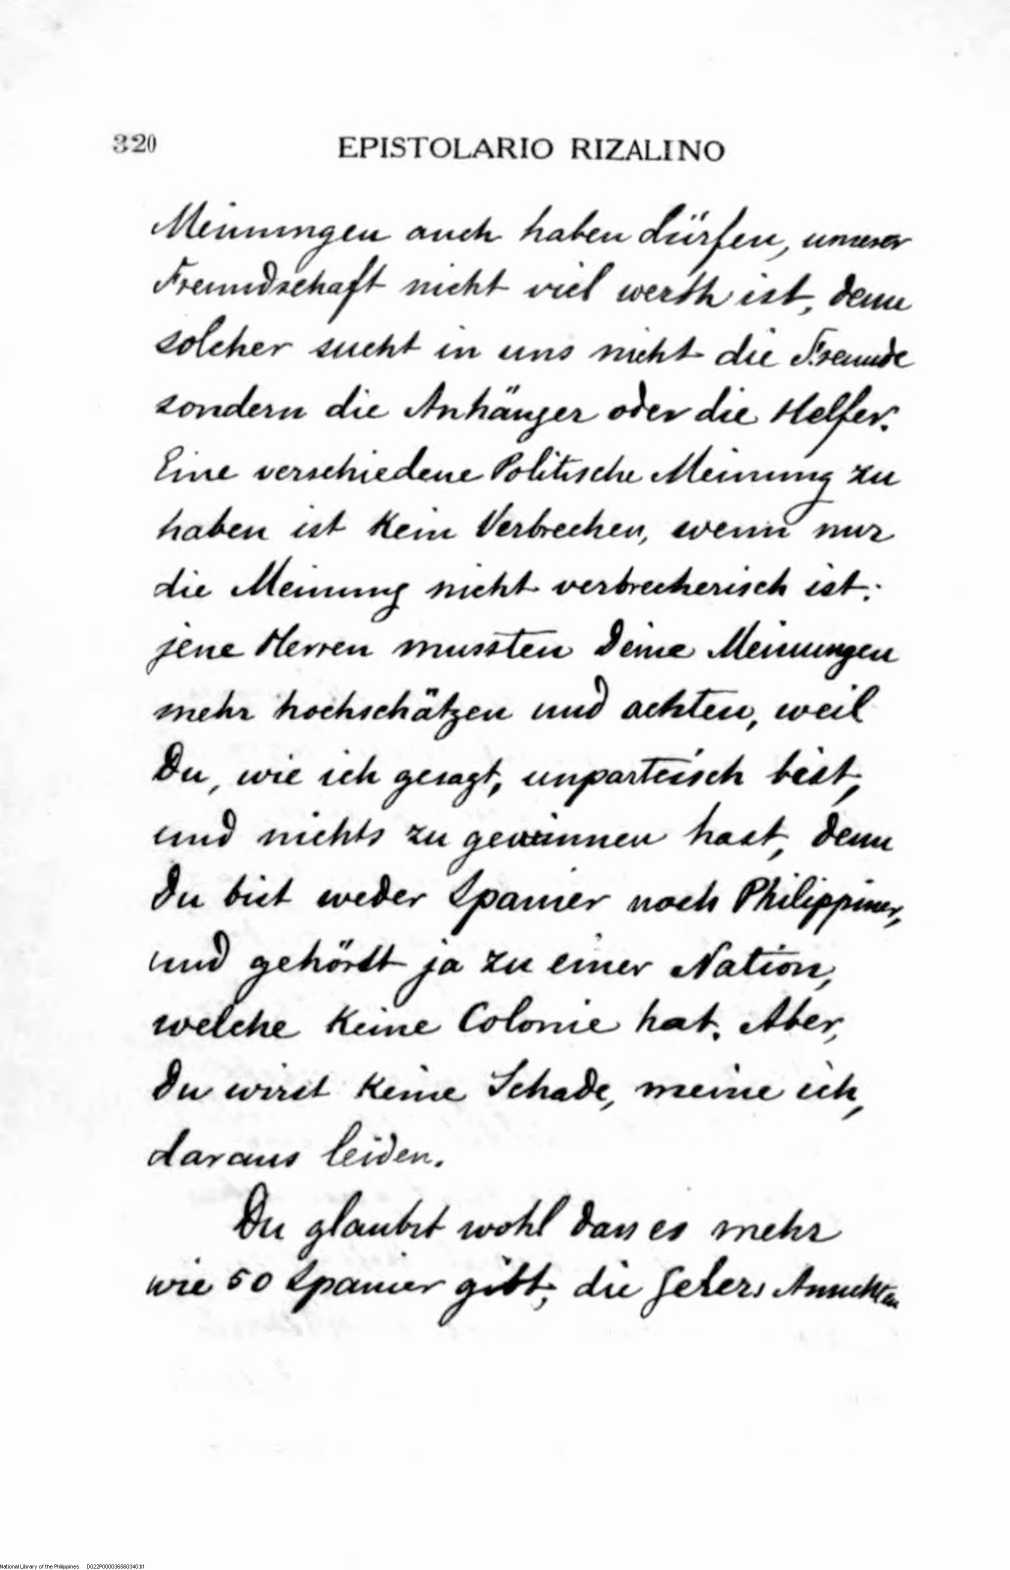 320
EPISTOLARIO RIZALINO
Meinungen auch haben dürfen, unserer
Freundschaft nicht viel werth ist, denn
solcher sucht in uns nicht die Freunde
sondern die Anhänger oder die Helfer.
Eine verschiedene Politische Meinung zu
haben ist Kein Verbrechen, wenn nur
die Meinung nicht verbrecherisch ist.
jene Herren mussten Deine Meinungen
mehr hochschätzen und achten, weil
Du, wie ich gesagt, unparteiisch bist,
und nichts zu gewinnen hast, denn
Du bist weder Spanier noch Philippiner,
und gehörst ja zu einer Nation,
welche Keine Colonie hat. Aber,
Du wirst Keine Schade, meine ich,
daraus leiden.
Du glaubst wohl dass es mehr
wie 50 Spanier gibt, die Ansichten
National Library of the Philippines